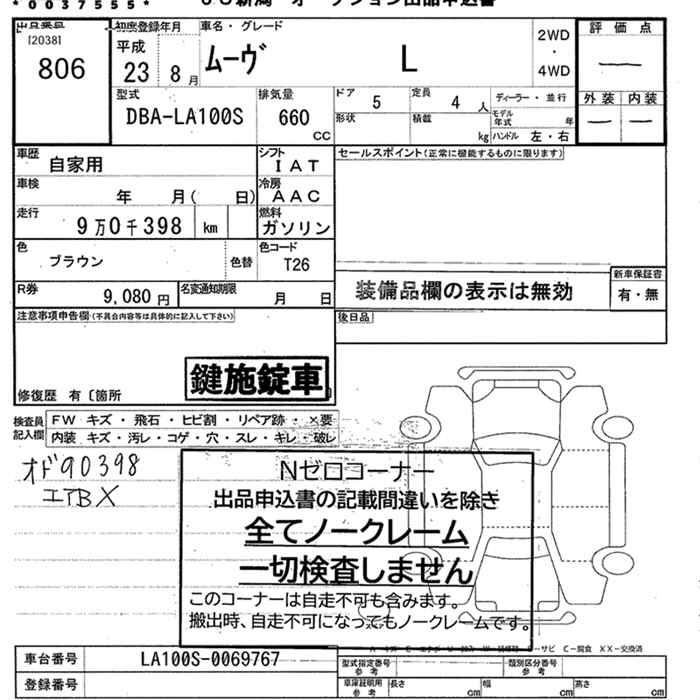 * 0 0 3 7 5 5 5 *
出品番号
[2038]
806
初度登録年月
平成
23 8月
車名・グレード
ムーヴ L
2WD
・
4WD
評価点
―
外装 内装
― ―
型式
DBA-LA100S
排気量
660
CC
ドア
5
定員
4 人
ディーラー・並行
形状
積載
kg
モデル年式 年
ハンドル 左・右
車歴
自家用
シフト
IAT
セールスポイント(正常に機能するものに限ります)
車検
年 月( 日)
冷房
AAC
走行
9万0千398 km
燃料
ガソリン
色
ブラウン
色替
色コード
T26
R券
9,080円
名変通知期限
月 日
装備品欄の表示は無効
新車保証書
有・無
注意事項申告欄(不具合内容等は具体的に記入して下さい)
後日品
鍵施錠車
修復歴 有〔箇所
検査員記入欄
FW キズ・飛石・ヒビ割・リペア跡・×要
内装 キズ・汚レ・コゲ・穴・スレ・キレ・破レ
オド90398
エアBX
Nゼロコーナー
出品申込書の記載間違いを除き
全てノークレーム
一切検査しません
このコーナーは自走不可も含みます。
搬出時、自走不可になってもノークレームです。
C-腐食 XX-交換済
車台番号
LA100S-0069767
型式指定番号
参考
類別区分番号
参考
登録番号
車庫証明用
参考
長さ cm
幅 cm
高さ cm